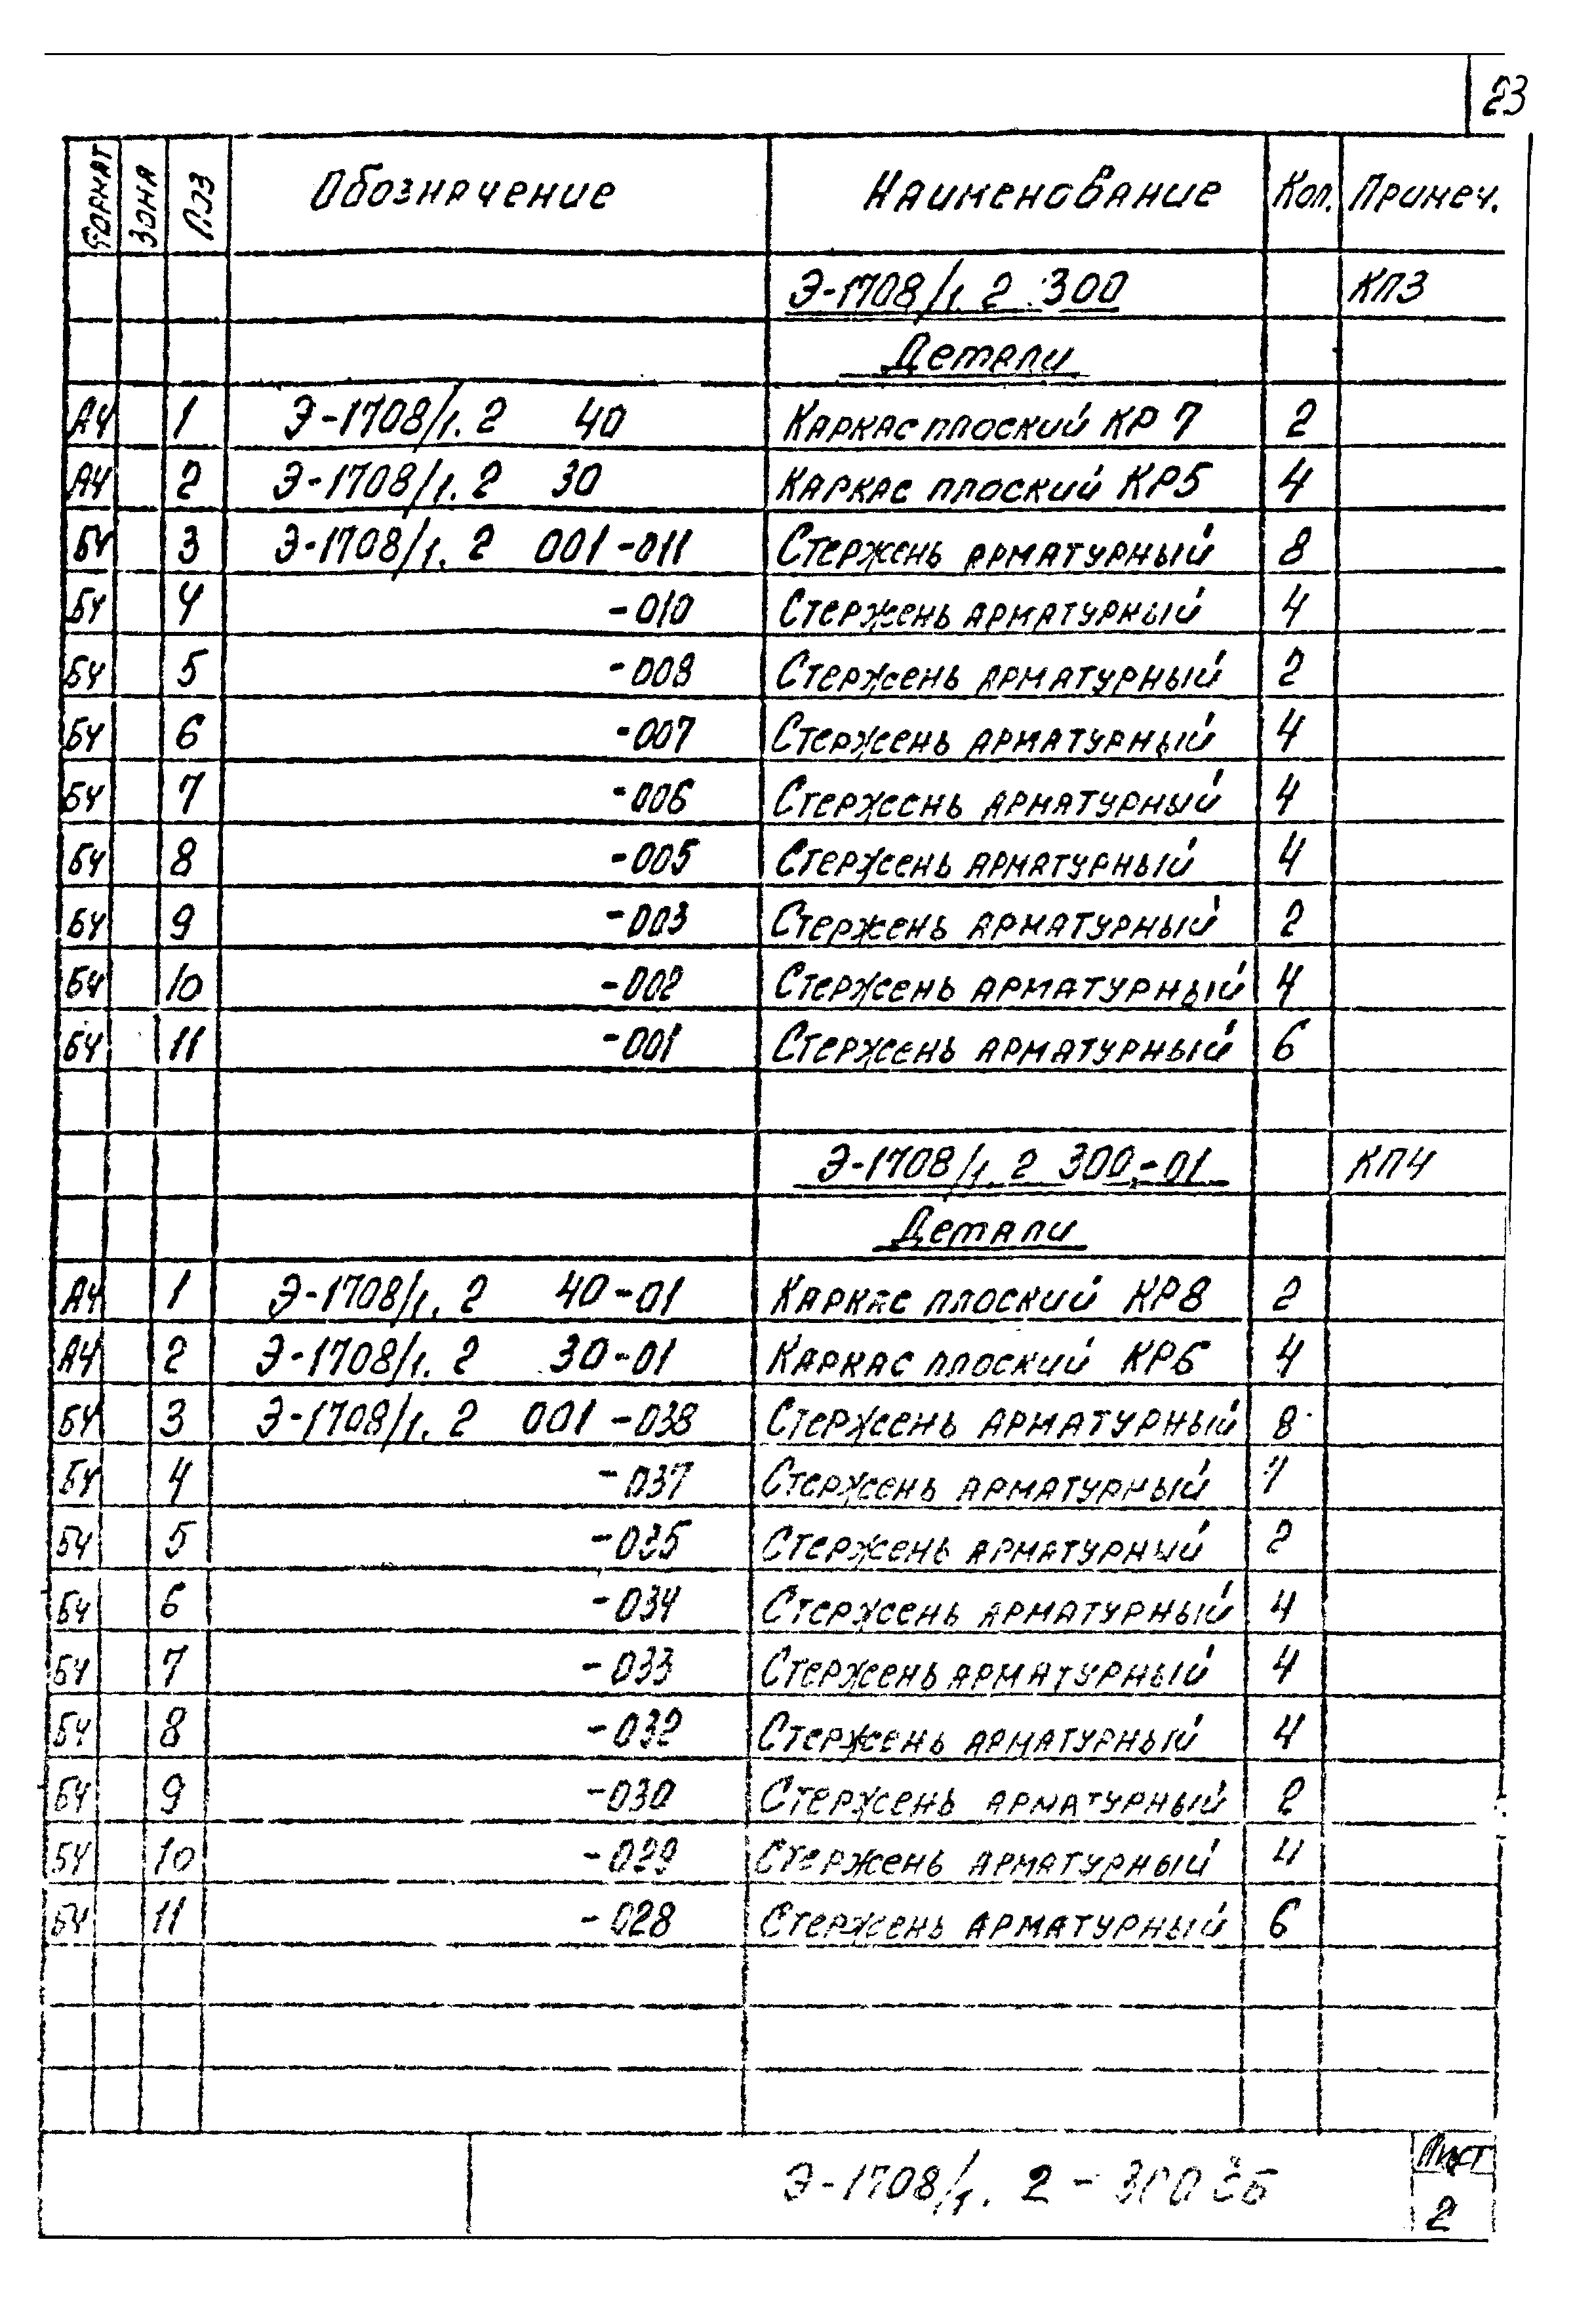 23
Формат Зона Поз Обозначение Наименование Кол. Примеч.
Э-1708/1. 2 300 КП3
Детали
А4 1 Э-1708/1. 2 40 Каркас плоский КР 7 2
А4 2 Э-1708/1. 2 30 Каркас плоский КР5 4
БЧ 3 Э-1708/1. 2 001-011 Стержень арматурный 8
БЧ 4 -010 Стержень арматурный 4
БЧ 5 -008 Стержень арматурный 2
БЧ 6 -007 Стержень арматурный 4
БЧ 7 -006 Стержень арматурный 4
БЧ 8 -005 Стержень арматурный 4
БЧ 9 -003 Стержень арматурный 2
БЧ 10 -002 Стержень арматурный 4
БЧ 11 -001 Стержень арматурный 6
Э-1708/1. 2 300-01 КП4
Детали
А4 1 Э-1708/1. 2 40-01 Каркас плоский КР8 2
А4 2 Э-1708/1. 2 30-01 Каркас плоский КР6 4
БЧ 3 Э-1708/1. 2 001-038 Стержень арматурный 8
БЧ 4 -037 Стержень арматурный
БЧ 5 -035 Стержень арматурный 2
БЧ 6 -034 Стержень арматурный 4
БЧ 7 -033 Стержень арматурный 4
БЧ 8 -032 Стержень арматурный 4
БЧ 9 -030 Стержень арматурный 2
БЧ 10 -029 Стержень арматурный 4
БЧ 11 -028 Стержень арматурный 6
Э-1708/1. 2 - 300 СБ
Лист
2